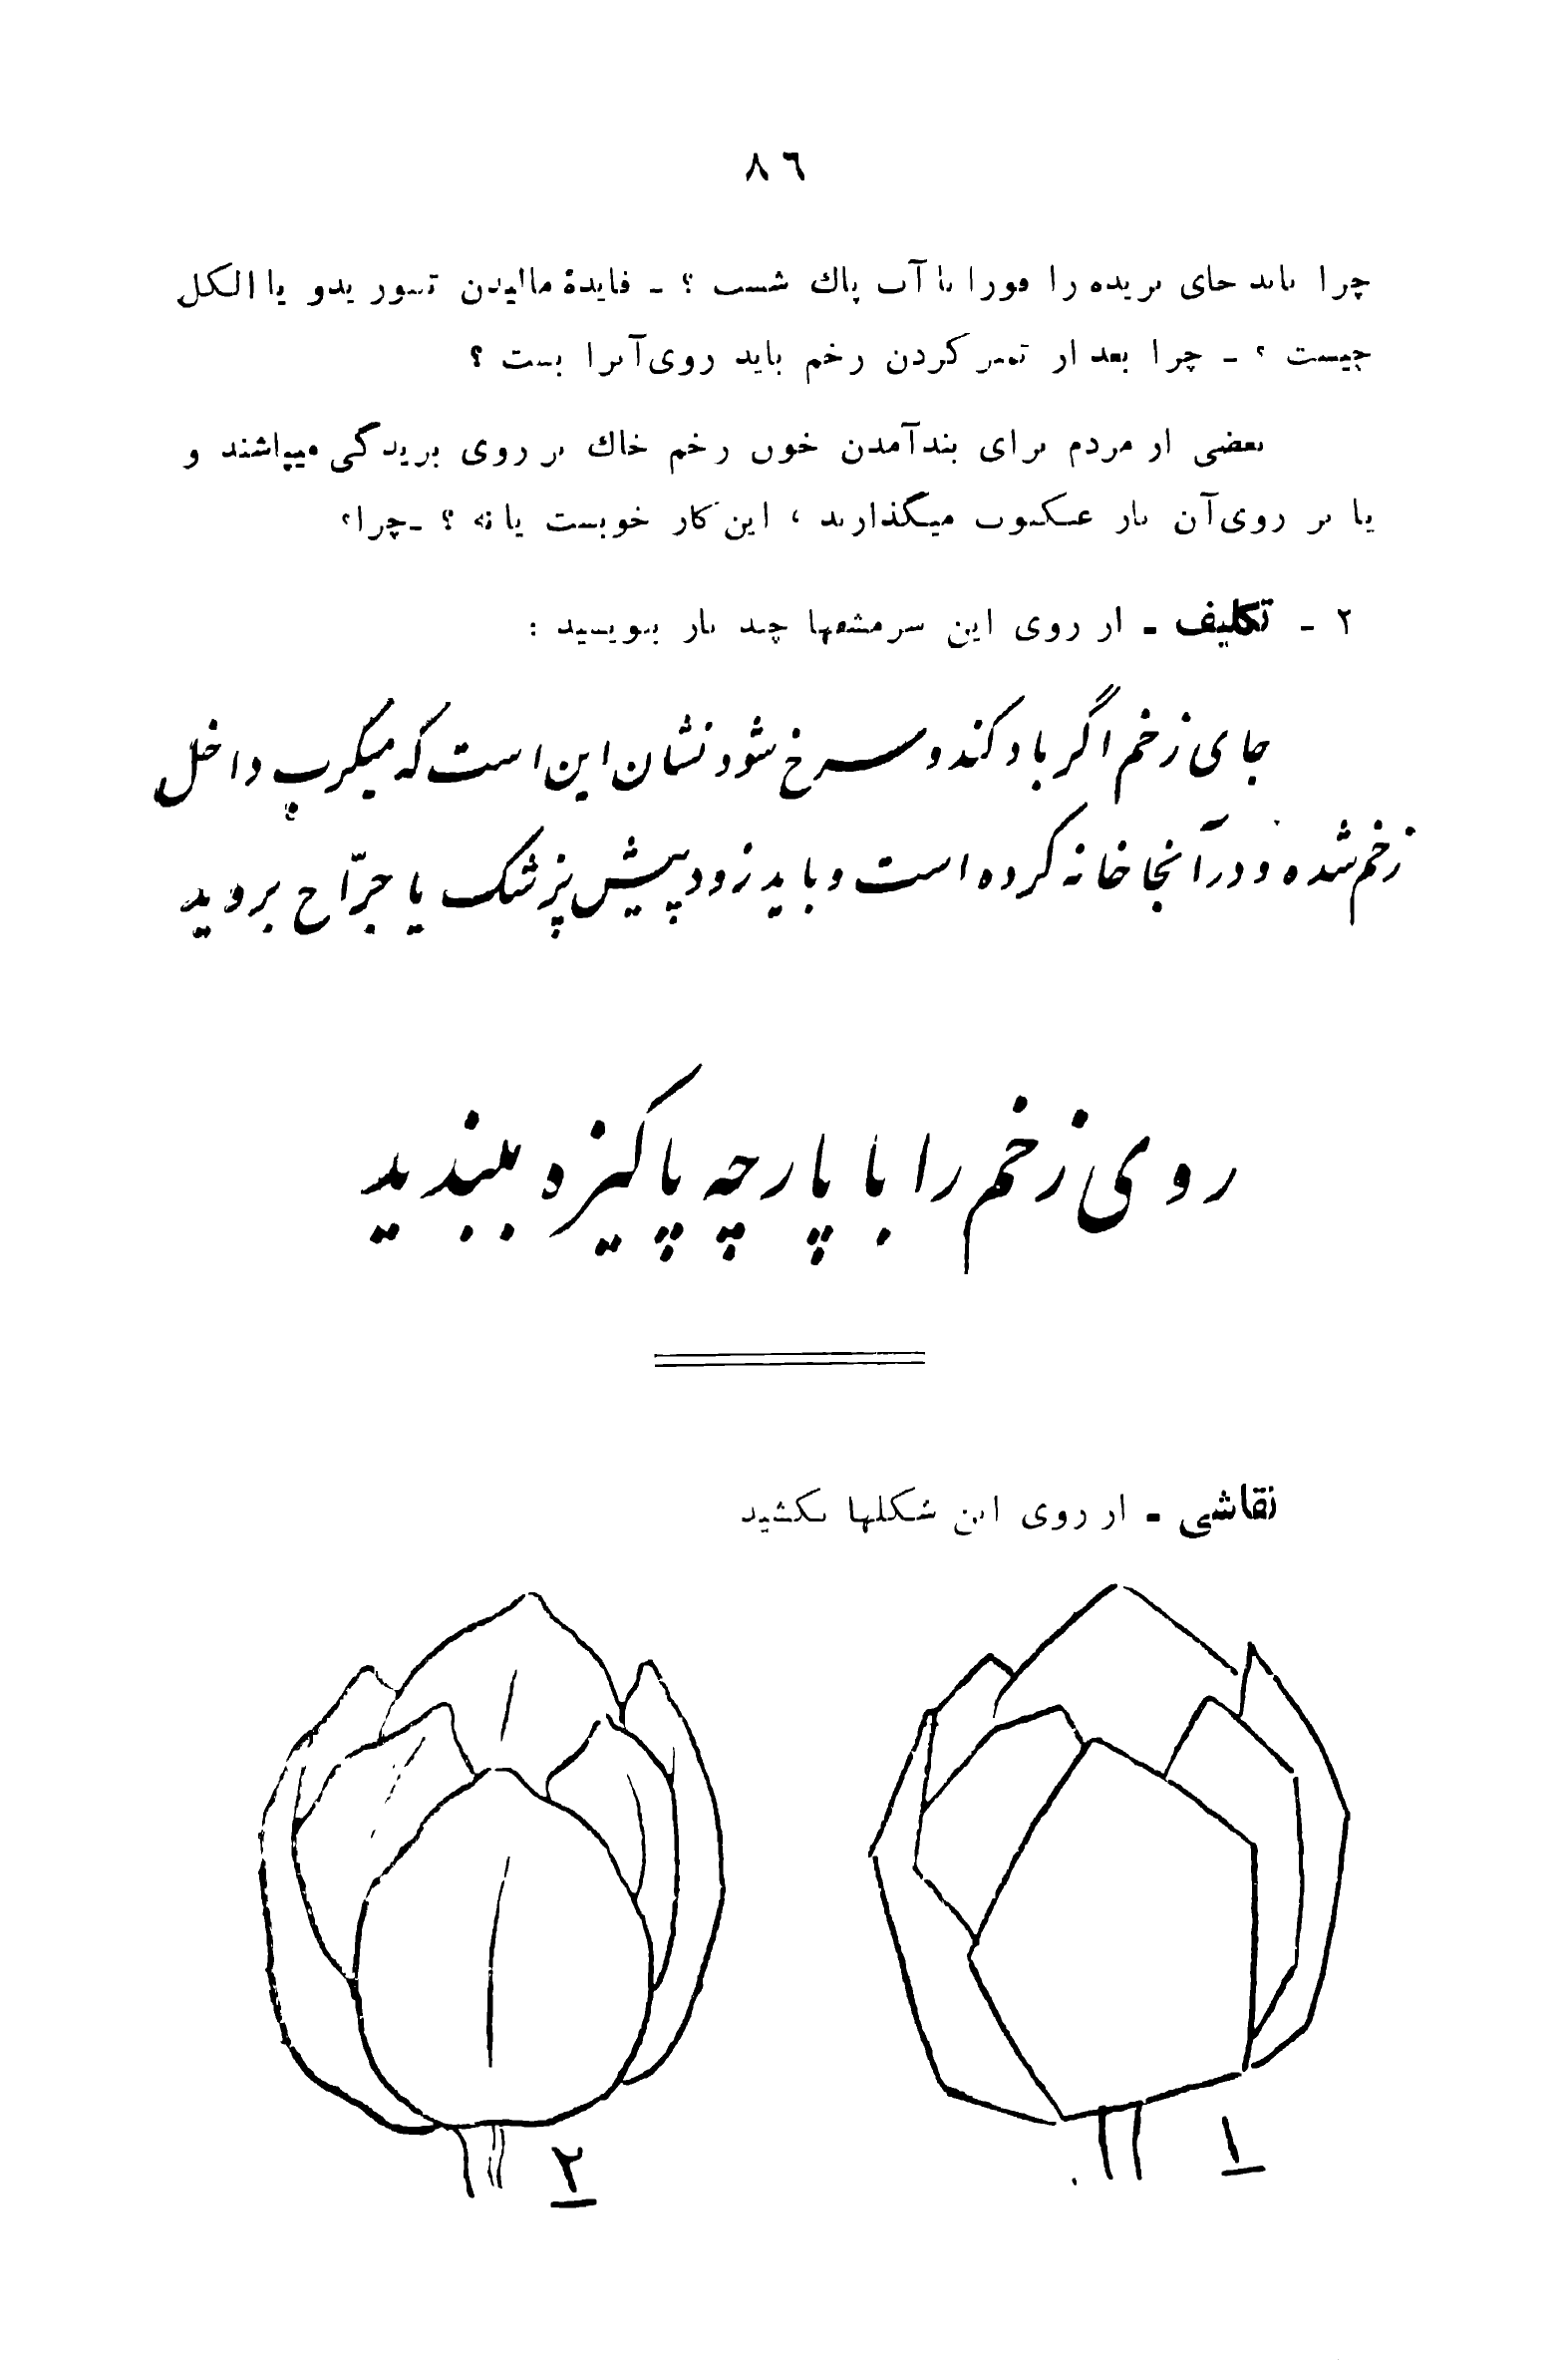 ٨٦
چرا باید جای بریده را فورا با آب پاك شست ؟ ـ فایدهٔ مالیدن تنتور یدو یا الکل
چیست ؟ ـ چرا بعد از تمیز کردن زخم باید روی آنرا بست ؟
بعضی از مردم برای بندآمدن خون زخم خاك بر روی بریدگی میپاشند و
یا بر روی آن تار عنکبوت میگذارند ، این کار خوبست یا نه ؟ ـ چرا؟
٢ ـ تکلیف ـ از روی این سرمشقها چند بار بنویسید :
جای زخم اگر باد کند و سرخ شود نشان این است که میکرب داخل
زخم شده و در آنجا خانه کرده است و باید زود پیش پزشک یا جرّاح بروید
روی زخم را با پارچه پاکیزه ببندید
نقاشی ـ از روی این شکلها بکشید
١
٢